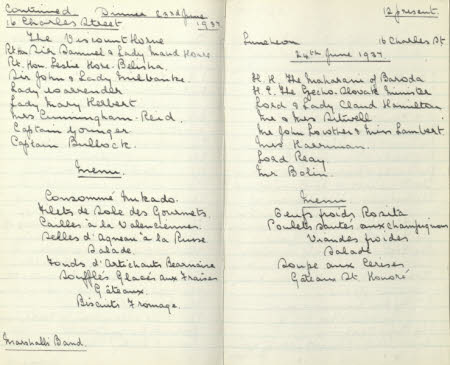 Continued Dinner 23rd June 1937
16 Charles Street
The Viscount Horne
Rt Hon Sir Samuel & Lady Maud Hoare
Rt. Hon. Leslie Hore-Belisha.
Sir John & Lady Milbanke
Lady Warrender
Lady Mary Herbert
Mrs Cunningham-Reid.
Captain Younger
Captain Bullock.
Menu.
Consommé Mikado.
Filets de Sole des Gourmets.
Cailles à la Valenciennes.
Selles d'Agneau à la Russe
Salade.
Fonds d'Artichauts Bearnaise
Soufflés Glacés aux Fraises
Gâteaux.
Biscuits Fromage.
Marshalls Band.
12 present.
Luncheon 16 Charles St
24th June 1937
H. H. The Maharani of Baroda
H. E. The Czecho-Slovak Minister
Lord & Lady Claud Hamilton
Mr & Mrs Sitwell
Mr John Lowther & Miss Lambert
Mrs Harriman.
Lord Reay.
Mr Bolin.
Menu
Oeufs froids Rosita
Poulets sautés aux champignons
Viandes froides
Salade
Soupe aux Cerises
Gâteaux St. Honoré